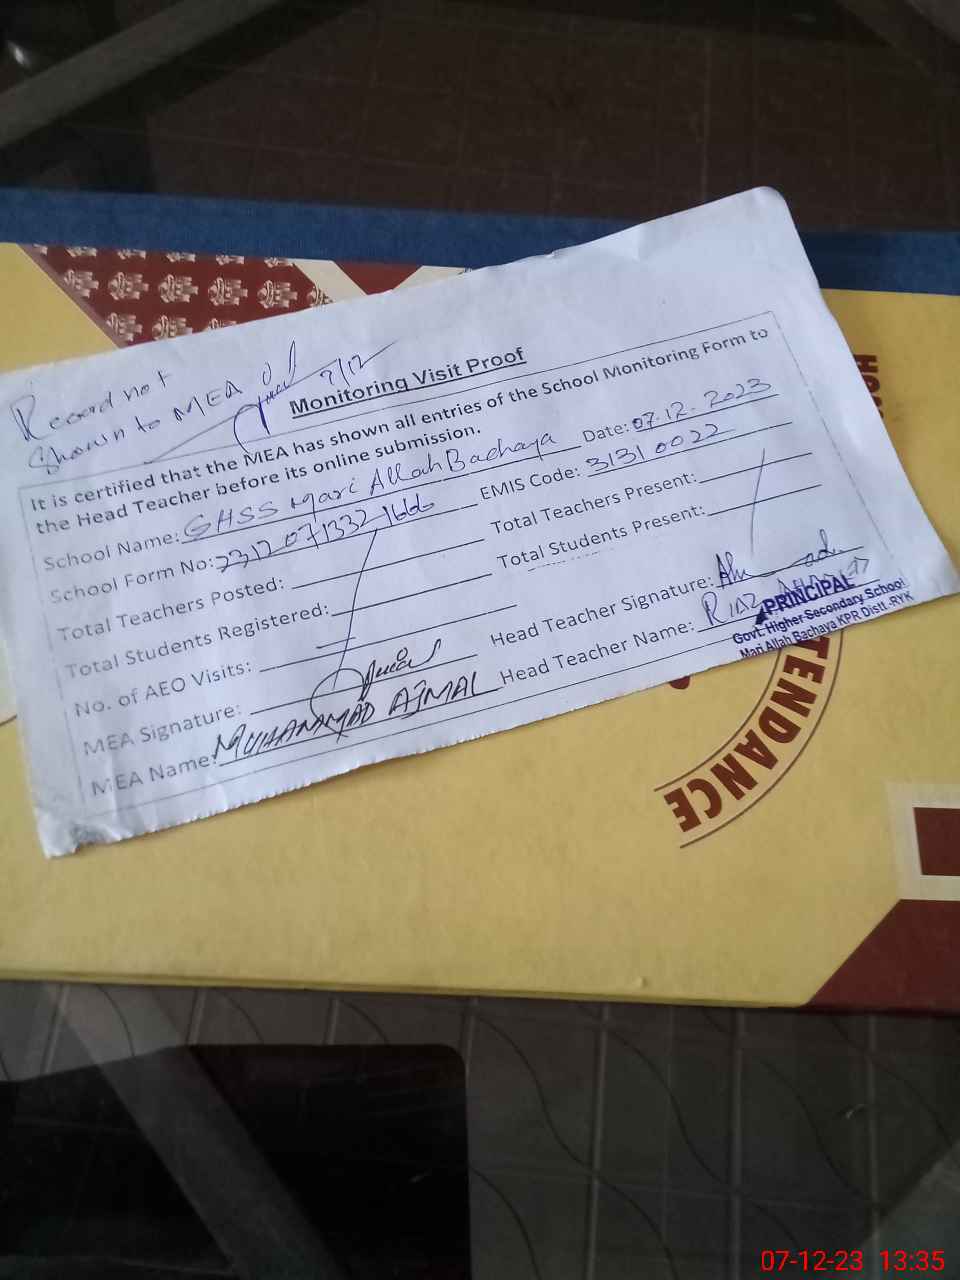 Record not
Shown to MEA
7/12
Monitoring Visit Proof
It is certified that the MEA has shown all entries of the School Monitoring Form to
the Head Teacher before its online submission.
School Name: GHSS Mari Allah Bachaya Date: 07.12.2023
School Form No: 2312071332166 EMIS Code: 31310022
Total Teachers Posted: Total Teachers Present:
Total Students Registered: Total Students Present:
No. of AEO Visits:
MEA Signature: Head Teacher Signature:
MEA Name: MUHAMMAD AJMAL Head Teacher Name: RIAZ
PRINCIPAL
Govt. Higher Secondary School
Mari Allah Bachaya KPR Distt.-RYK
TENDANCE
07-12-23 13:35